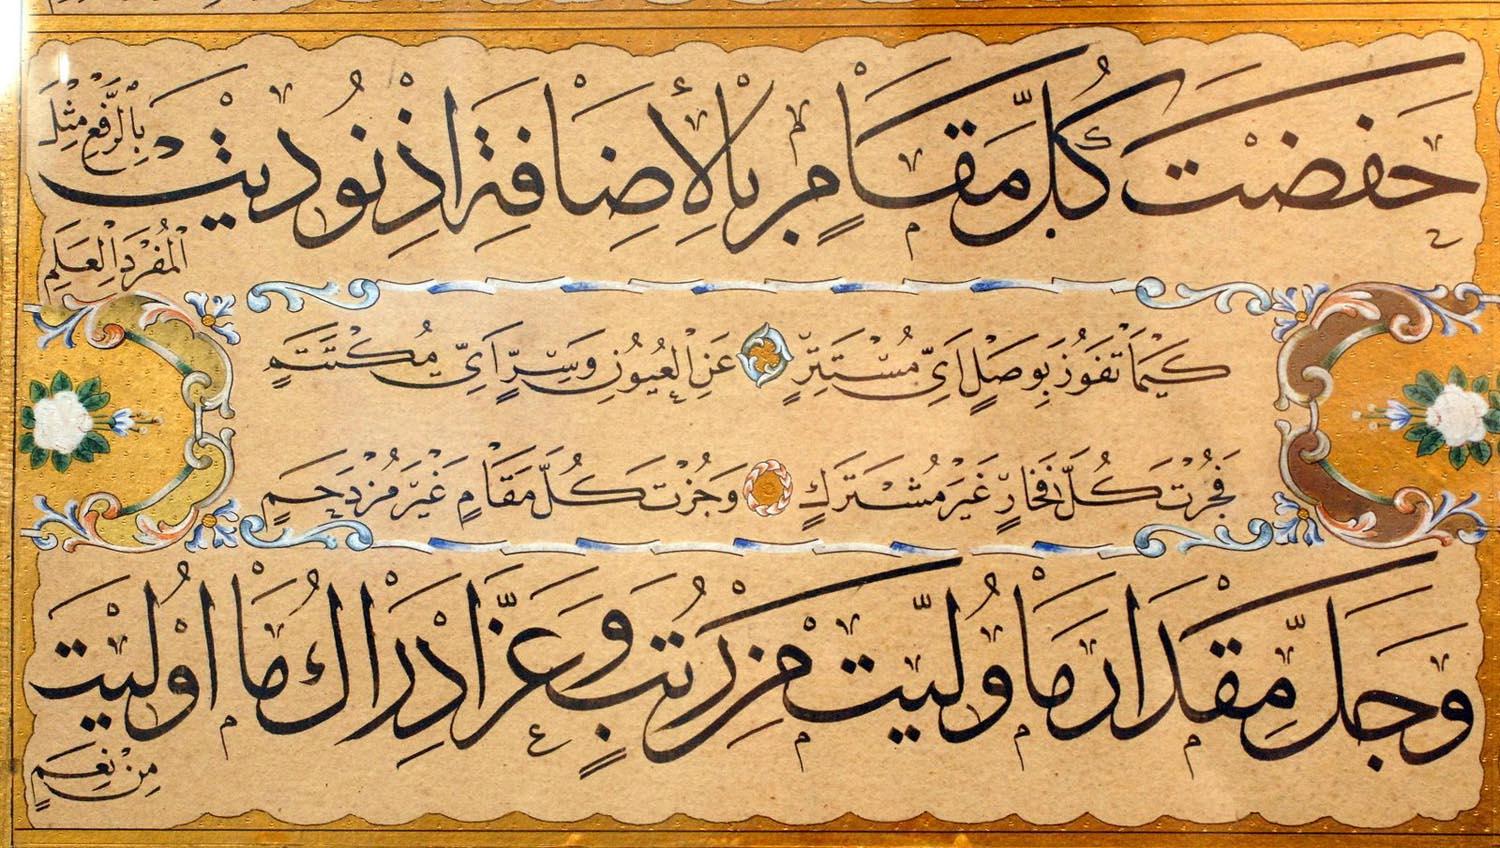 حَفَضْتَ كُلَّ مَقَامٍ بِالْاِضَافَةِ اِذْ نُودِيتَ بِالرَّفْعِ مِثْلَ
الْمُفْرَدِ الْعَلَمِ
كَيْمَا تَفُوزَ بِوَصْلٍ اَيِّ مُسْتَتِرٍ عَنِ الْعُيُونِ وَسِرٍّ اَيِّ مُكْتَتَمٍ
فَجُزْتَ كُلَّ فَخَارٍ غَيْرَ مُشْتَرَكٍ وَجُزْتَ كُلَّ مَقَامٍ غَيْرَ مُزْدَحَمٍ
وَجَلَّ مِقْدَارُ مَا وُلِّيتَ مِنْ رُتَبٍ وَعَزَّ اِدْرَاكُ مَا اُولِيتَ
مِنْ نِعَمٍ